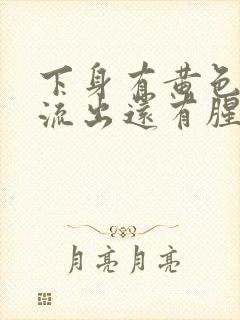 下身有黄色
流出還有腥
月亮月亮